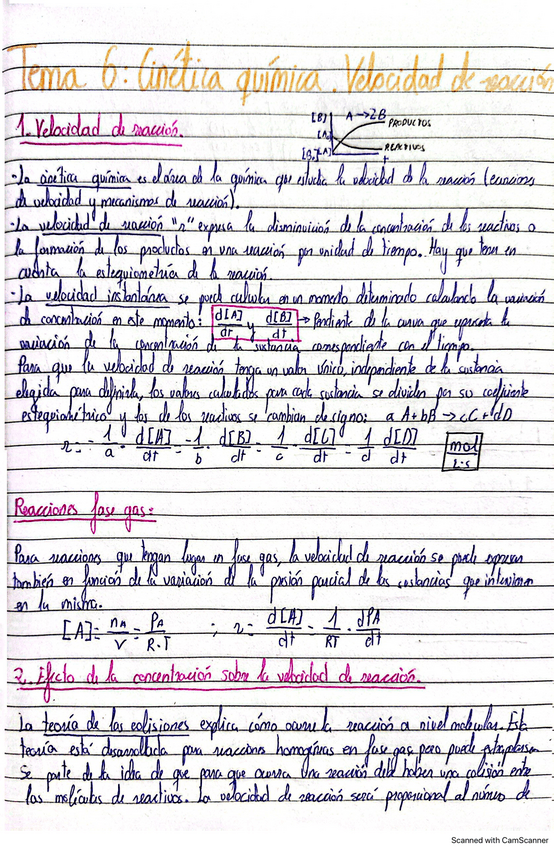 Tema 6: Cinética química. Velocidad de reacción
1. Velocidad de reacción.
[B] A → 2B PRODUCTOS
[A₀]
REACTIVOS
[B₀]=[A] t
-La cinética química es el área de la química que estudia la velocidad de la reacción (ecuaciones
de velocidad y mecanismos de reacción).
-La velocidad de reacción "r" expresa la disminuición de la concentración de los reactivos o
la formación de los productos en una reacción por unidad de tiempo. Hay que tener en
cuenta la estequiometría de la reacción.
-La velocidad instantánea se puede calcular en un momento determinado calculando la variación
de concentración en este momento: d[A]/dt y d[B]/dt → Pendiente de la curva que representa la
variación de la concentración de la sustancia correspondiente con el tiempo.
Para que la velocidad de reacción tenga un valor único, independiente de la sustancia
elegida para definirla, los valores calculados para cada sustancia se dividen por su coeficiente
estequiométrico y los de los reactivos se cambian de signo: a A + bB → cC + dD
r = -1/a d[A]/dt = -1/b d[B]/dt = 1/c d[C]/dt = 1/d d[D]/dt mol/L·s
Reacciones fase gas:
Para reacciones que tengan lugar en fase gas, la velocidad de reacción se puede expresar
también en función de la variación de la presión parcial de las sustancias que intervienen
en la misma.
[A] = nA/V = PA/R·T ; r = d[A]/dt = 1/RT · dPA/dt
2. Efecto de la concentración sobre la velocidad de reacción.
La teoría de las colisiones explica cómo ocurre la reacción a nivel molecular. Esta
teoría está desarrollada para reacciones homogéneas en fase gas pero puede extrapolarse
Se parte de la idea de que para que ocurra una reacción debe haber una colisión entre
las moléculas de reactivos. La velocidad de reacción será proporcional al número de
Scanned with CamScanner